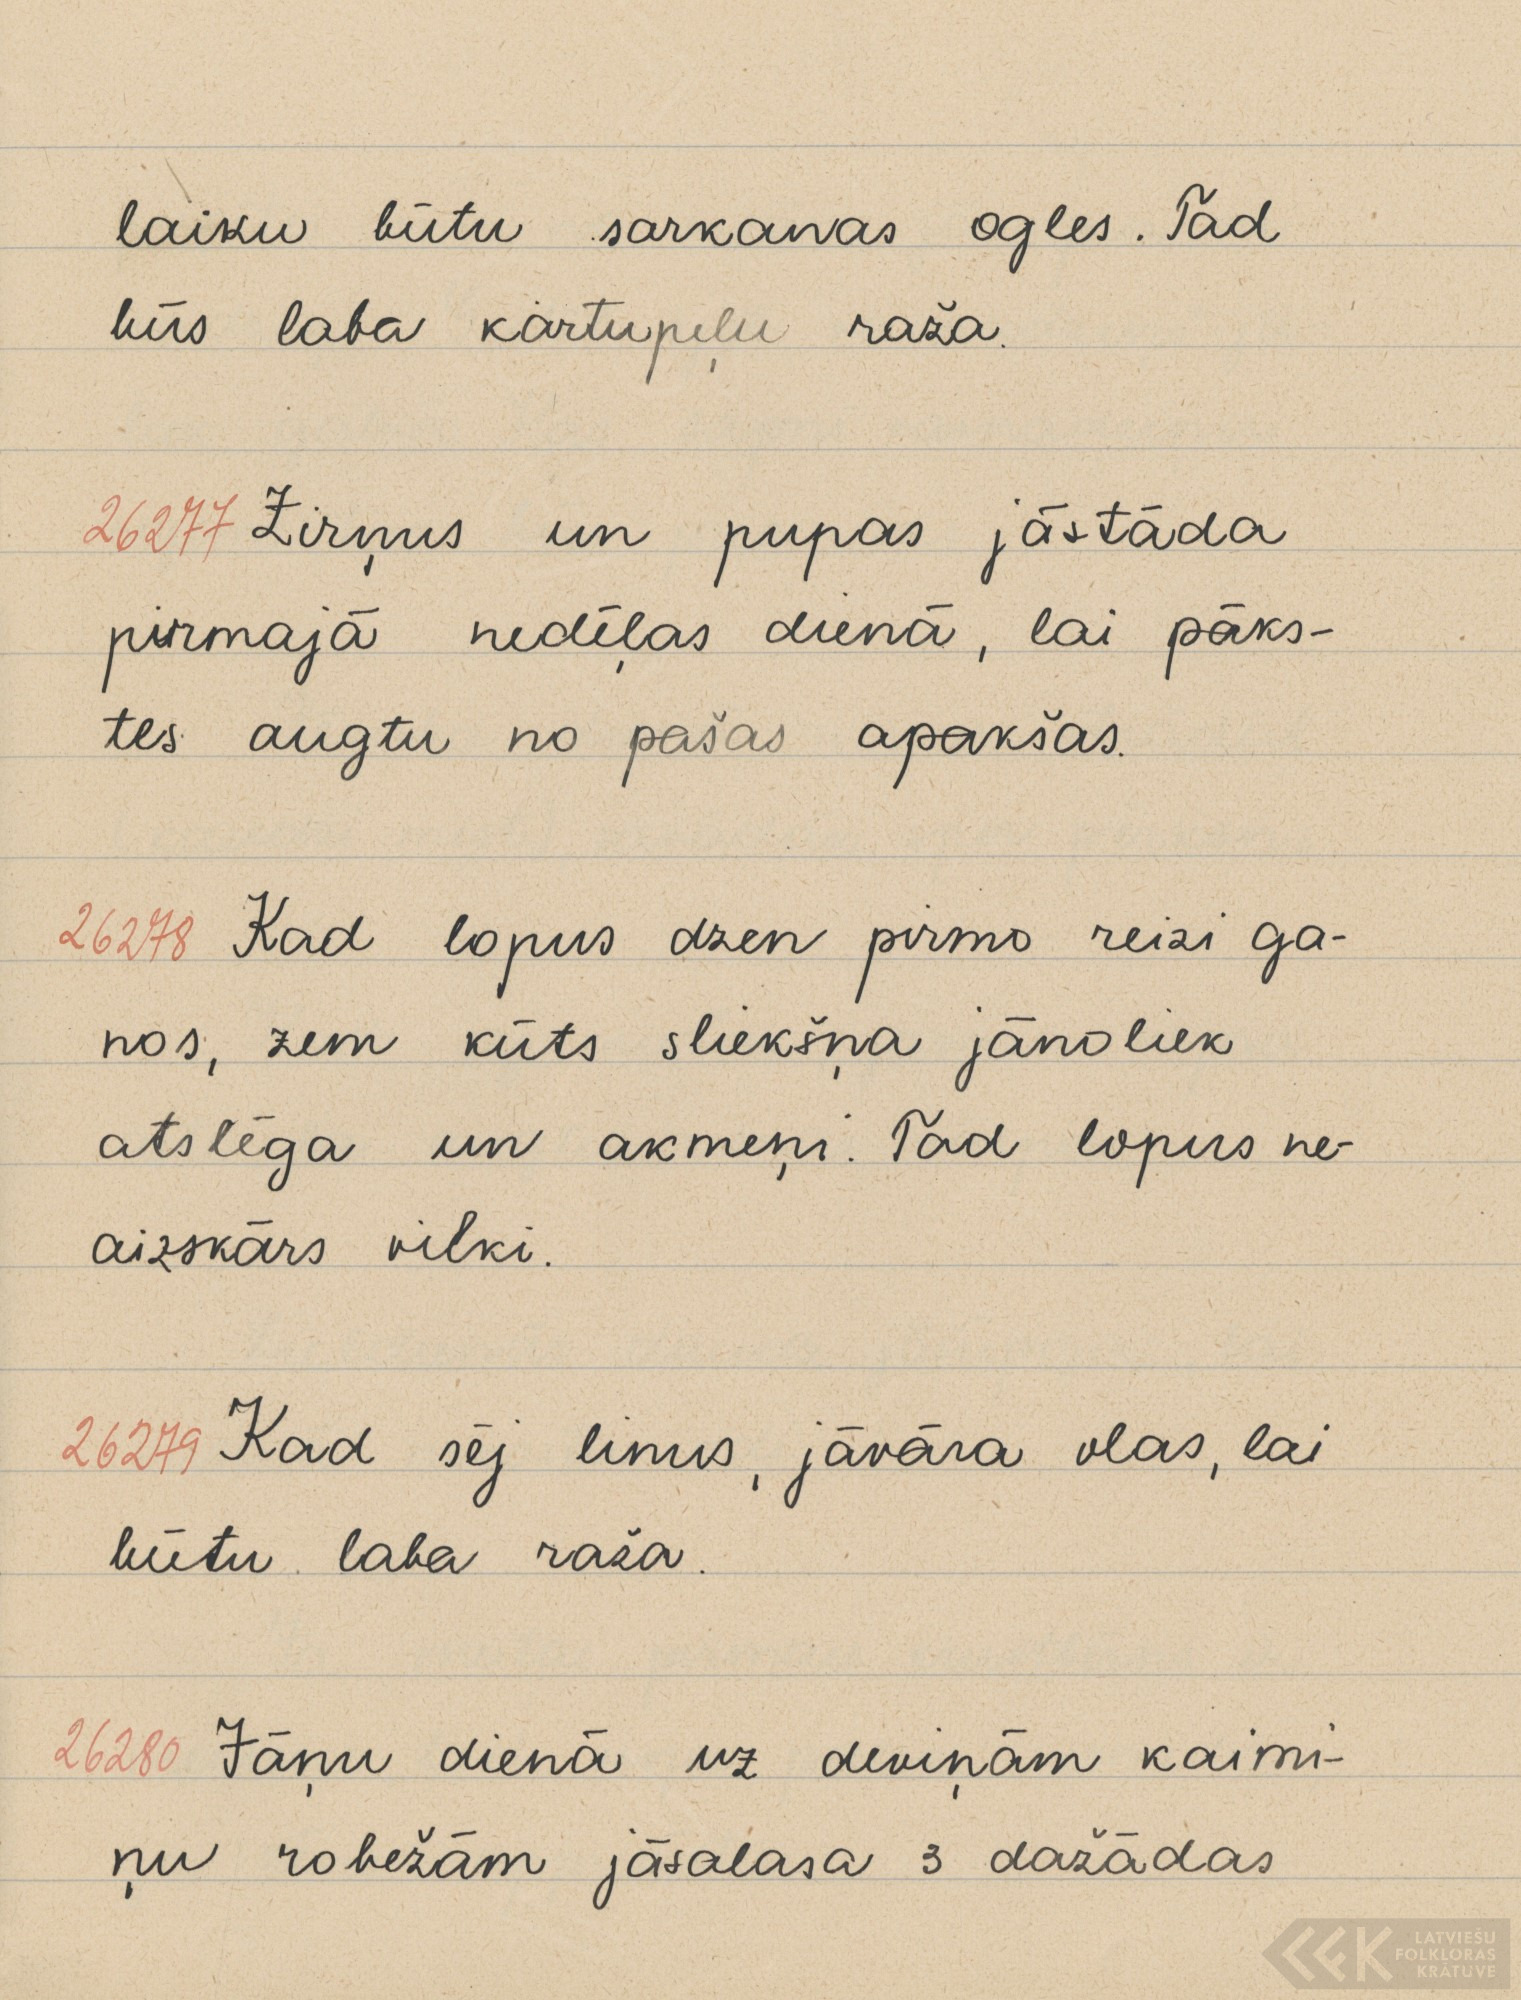 laiku būtu sarkanas ogles. Tad
būs laba kartupeļu raža.
26277 Zirņus un pupas jāstāda
pirmajā nedēļas dienā, lai pāks-
tes augtu no pašas apakšas.
26278 Kad lopus dzen pirmo reizi ga-
nos, zem kūts sliekšņa jānoliek
atslēga un akmeņi. Tad lopus ne-
aizskārs vilki.
26279 Kad sēj linus, jāvāra olas, lai
būtu laba raža.
26280 Jāņu dienā uz deviņām kaimi-
ņu robežām jāsalasa 3 dažādas
LATVIEŠU
FOLKLORAS
KRĀTUVE